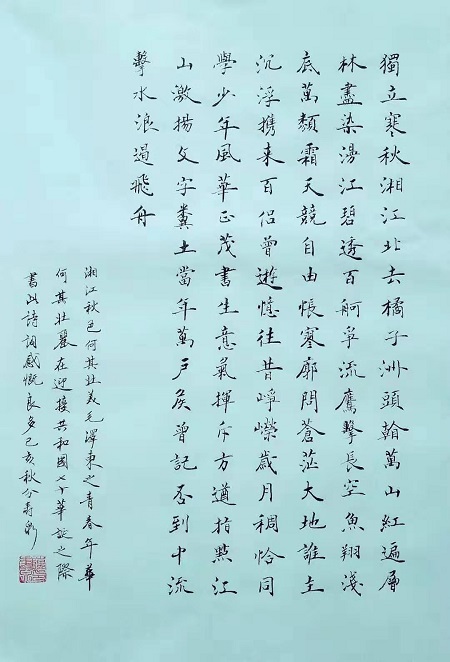 獨立寒秋湘江北去橘子洲頭看萬山紅遍層
林盡染漫江碧透百舸爭流鷹擊長空魚翔淺
底萬類霜天競自由悵寥廓問蒼茫大地誰主
沉浮携来百侶曾遊憶往昔崢嶸歲月稠恰同
學少年風華正茂書生意氣揮斥方遒指點江
山激揚文字糞土當年萬戶侯曾記否到中流
擊水浪遏飛舟
湘江秋色何其壯美毛澤東之青春年華
何其壯麗在迎接共和國七十華誕之際
書此詩詞感慨良多己亥秋分